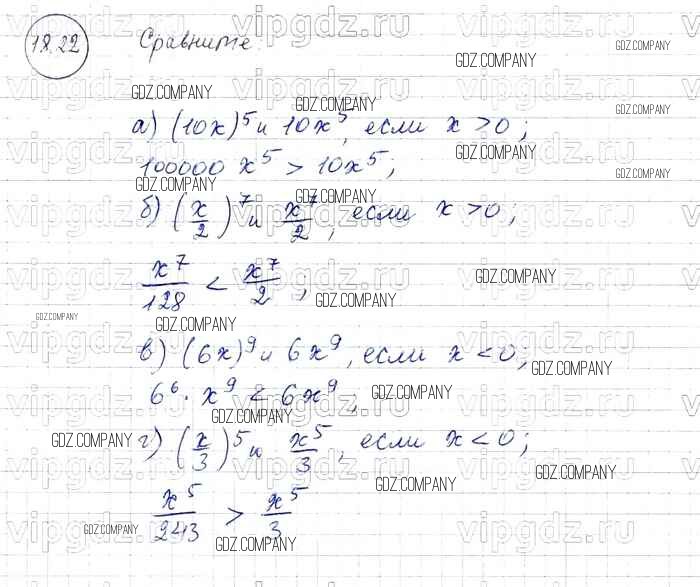 18.22 Сравните:
а) (10x)^5 и 10x^5, если x > 0;
100000 x^5 > 10x^5;
б) (x/2)^7 и x^7/2, если x > 0;
x^7/128 < x^7/2;
в) (6x)^9 и 6x^9, если x < 0;
6^6 · x^9 < 6x^9;
г) (x/3)^5 и x^5/3, если x < 0;
x^5/243 > x^5/3
vipgdz.ru
GDZ.COMPANY